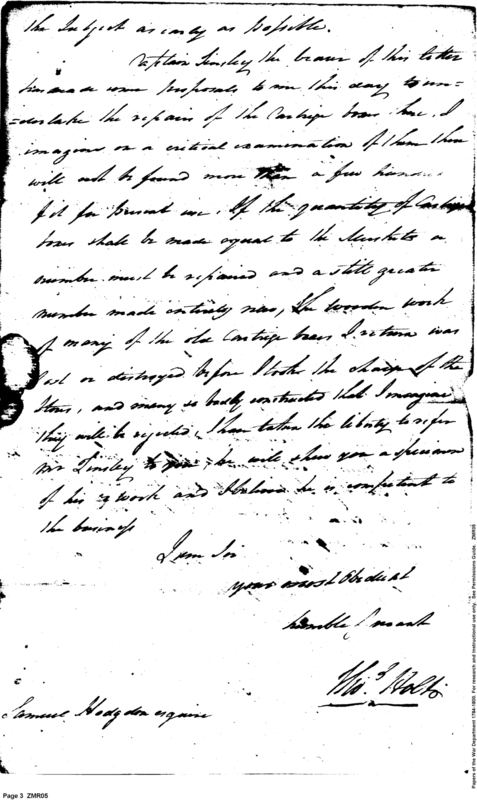 the Subject as early as possible.
Captain Tinsley the bearer of this letter
has made some proposals to me this day to un=
=dertake the repairs of the Cartrige boxes here, I
imagine on a critical examination of them there
will not be found more than a few hundred
fit for present use. If the quantity of Cartrige
boxes shall be made equal to the Muskets a
number must be repaired and a still greater
number made entirely new, the wooden work
of many of the old Cartrige boxes I return was
lost or destroyed before I took the charge of the
Stores, and many so badly constructed that I imagine
they will be rejected, I have taken the liberty to refer
Mr Tinsley to you, he will shew you a specimen
of his work and I believe he is competent to
the business
I am Sir
your most Obedient
humble Servant
Thos. Holt
Samuel Hodgdon esquire
Page 3 ZMR05
Papers of the War Department 1784-1800. For research and instructional use only. See Permissions Guide. ZMR05